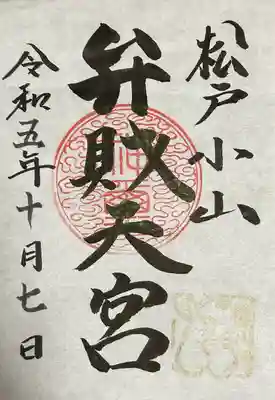 松戸小山
弁財天宮
令和五年十月七日